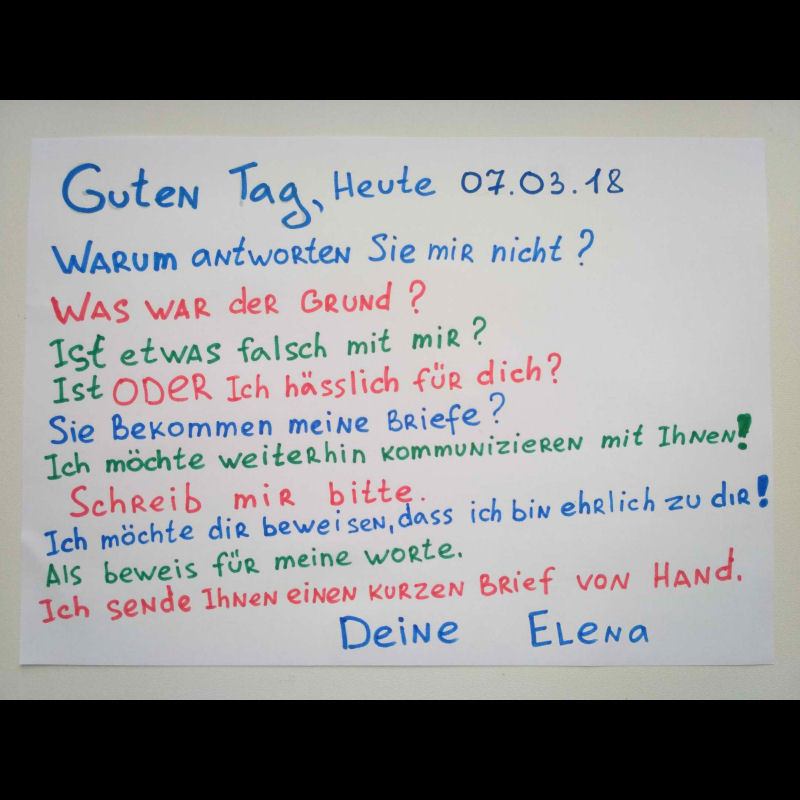 Guten Tag, Heute 07.03.18
Warum antworten Sie mir nicht?
Was war der Grund?
Ist etwas falsch mit mir?
Ist ODER Ich hässlich für dich?
Sie Bekommen meine Briefe?
Ich möchte weiterhin kommunizieren mit Ihnen!
Schreib mir bitte.
Ich möchte dir beweisen, dass ich bin ehrlich zu dir!
Als beweis für meine worte.
Ich sende Ihnen einen kurzen Brief von Hand.
Deine Elena